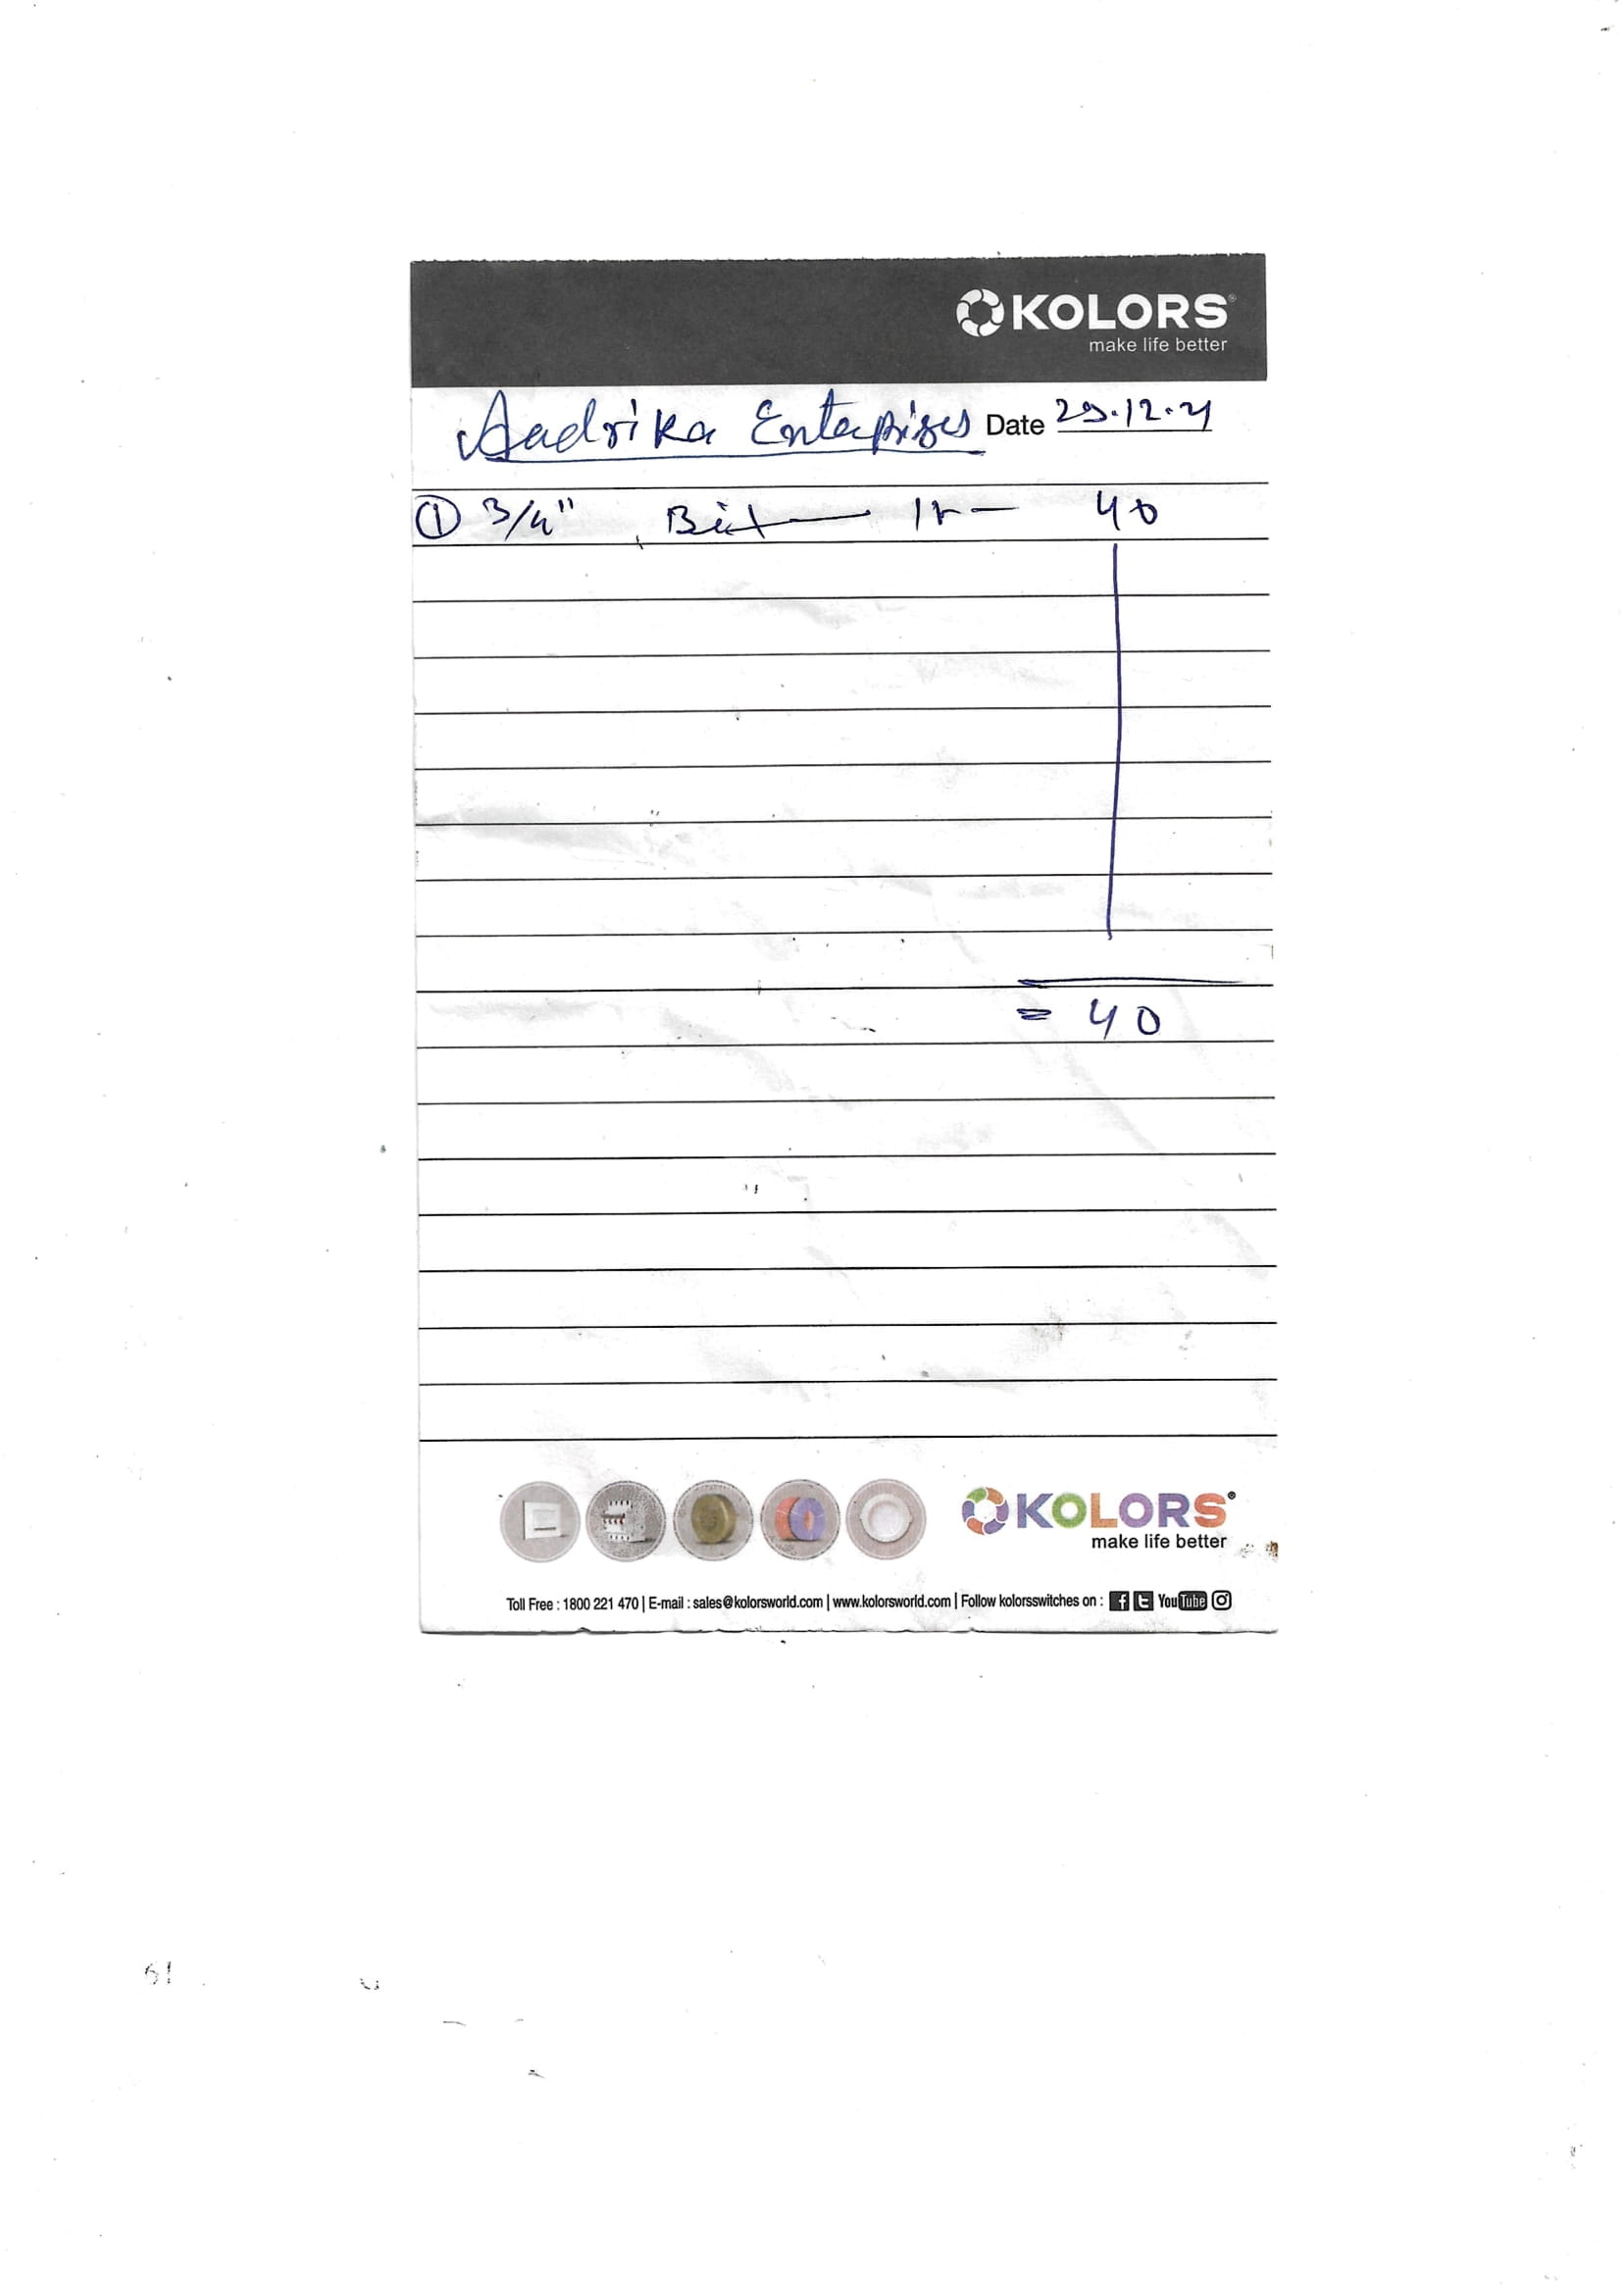 KOLORS®
make life better
Aadrika Enterprises Date 29.12.21
① 3/4" Bit — 1r — 40
= 40
KOLORS®
make life better
Toll Free : 1800 221 470 | E-mail : sales@kolorsworld.com | www.kolorsworld.com | Follow kolorsswitches on : You Tube